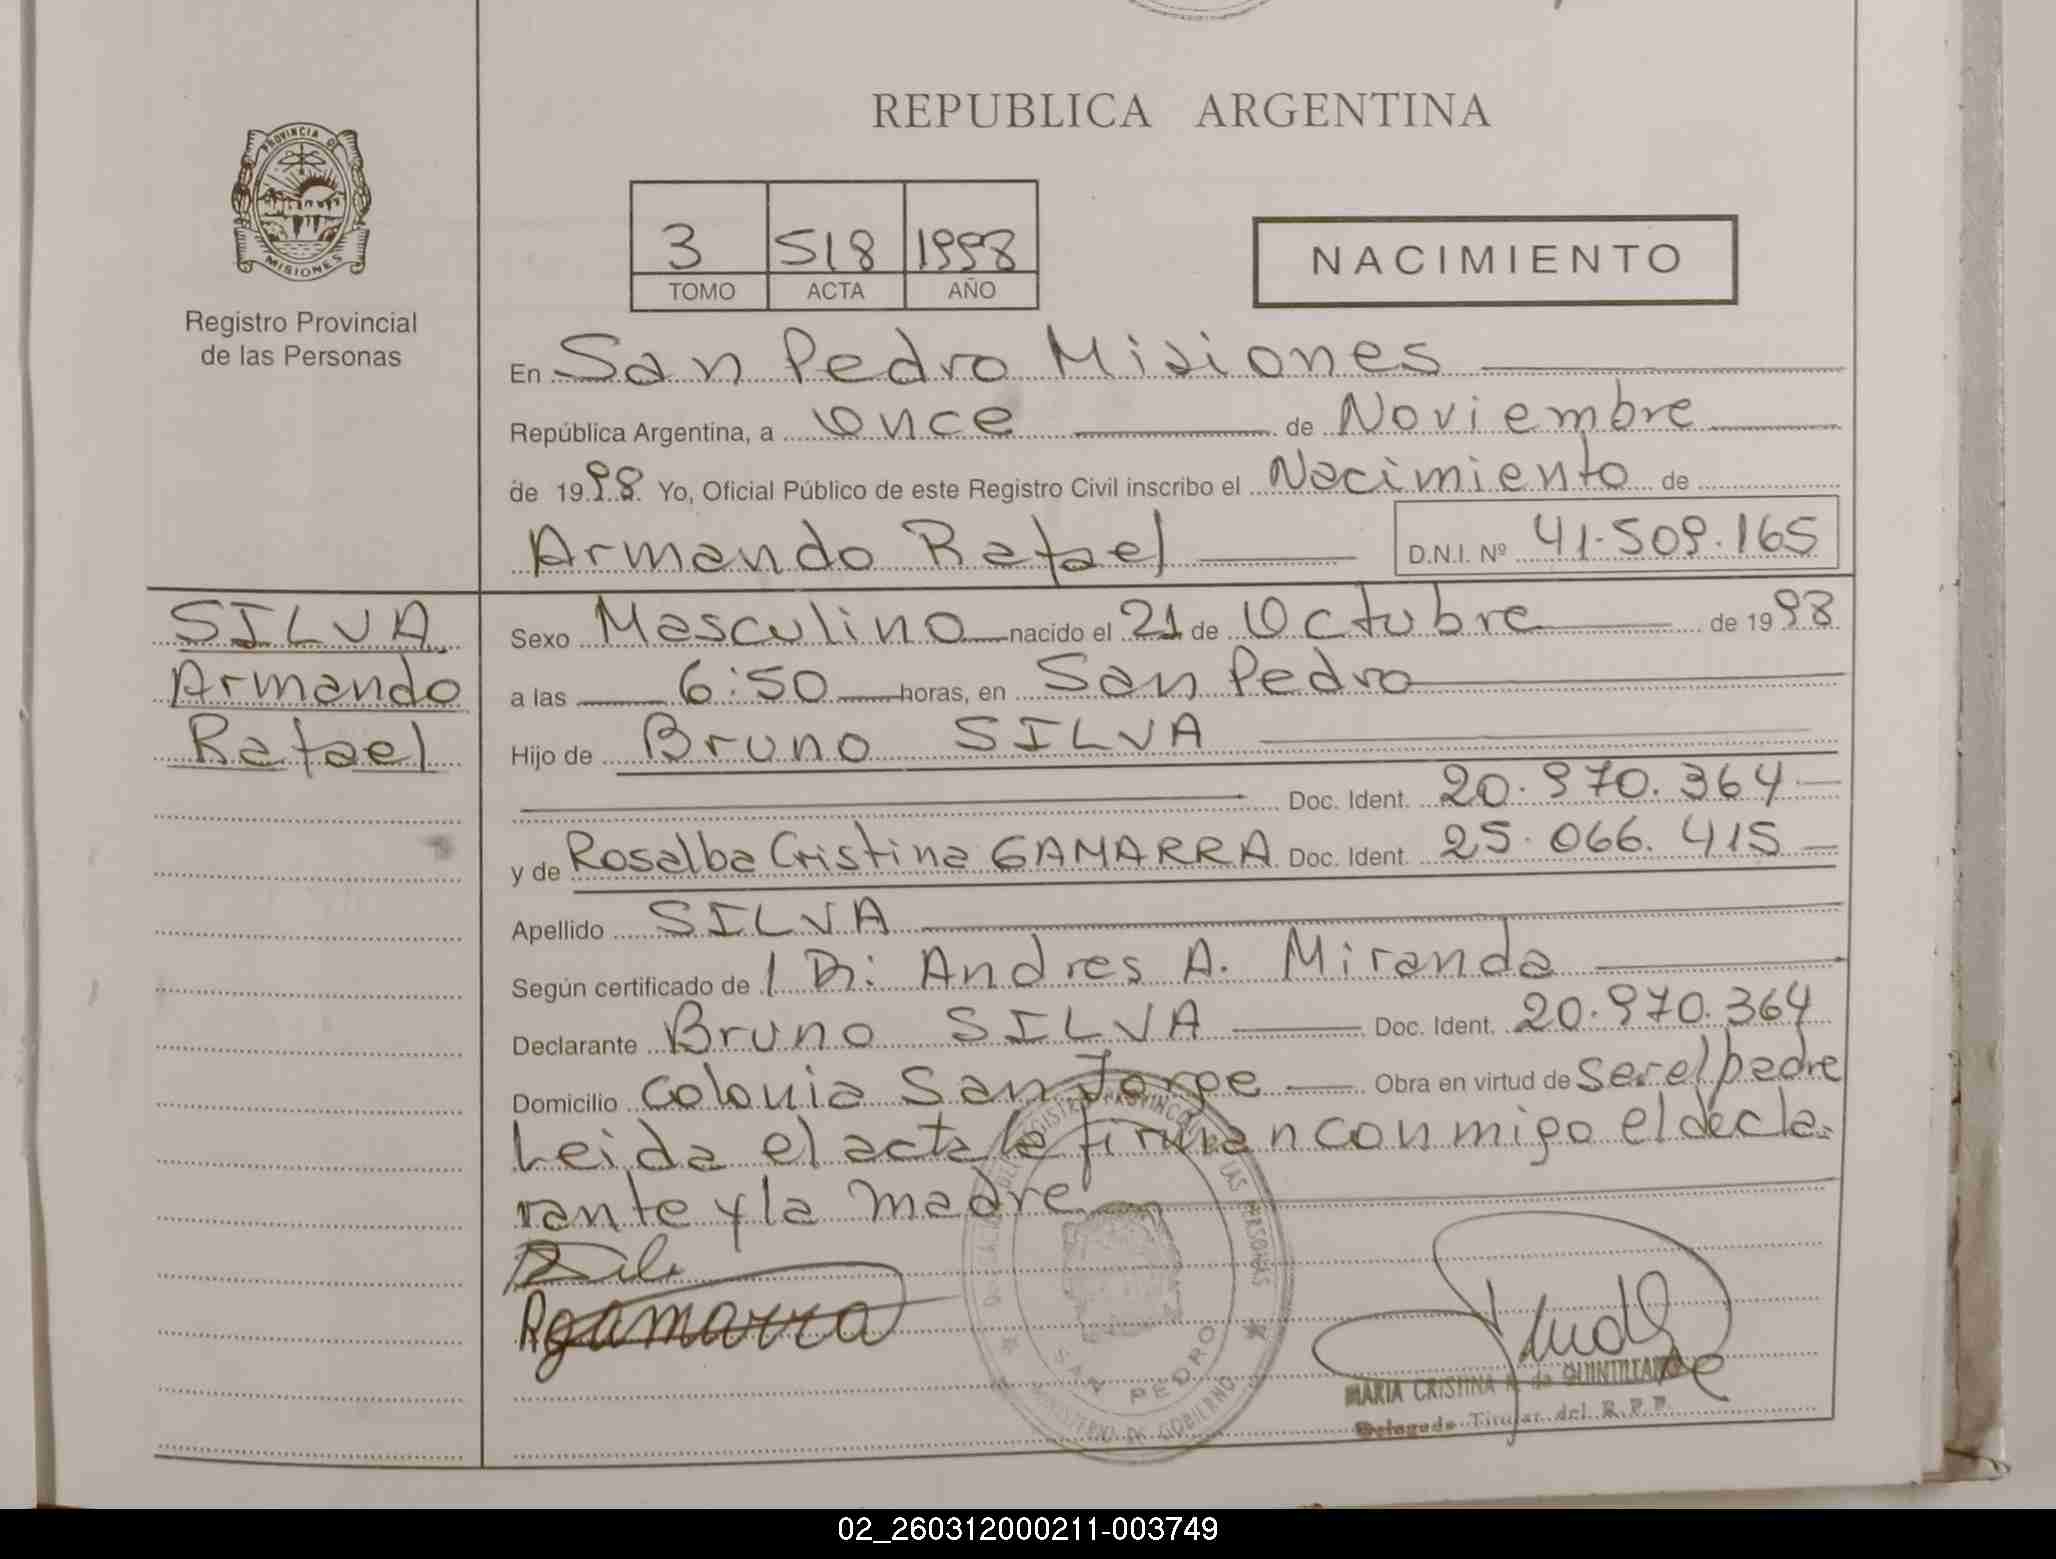 REPUBLICA ARGENTINA
PROVINCIA DE
MISIONES
Registro Provincial
de las Personas
3 518 1998
TOMO ACTA AÑO
NACIMIENTO
En San Pedro Misiones
República Argentina, a once de Noviembre
de 1998 Yo, Oficial Público de este Registro Civil inscribo el Nacimiento de
Armando Rafael D.N.I. Nº 41.509.165
SILVA
Armando
Rafael
Sexo Masculino nacido el 21 de Octubre de 1998
a las 6:50 horas, en San Pedro
Hijo de Bruno SILVA
Doc. Ident. 20.970.364
y de Rosalba Cristina GAMARRA Doc. Ident. 25.066.415
Apellido SILVA
Según certificado de / Dr: Andres A. Miranda
Declarante Bruno SILVA Doc. Ident. 20.970.364
Domicilio Colonia San Jorge Obra en virtud de ser el padre
Leida el acta la firman conmigo el decla-
rante y la madre
Rgamarra
REGISTRO PROVINCIAL DE LAS PERSONAS
SAN PEDRO
MINISTERIO DE GOBIERNO
MARIA CRISTINA de QUINTILLAN
Delegada Titular del R.P.P.
02_260312000211-003749